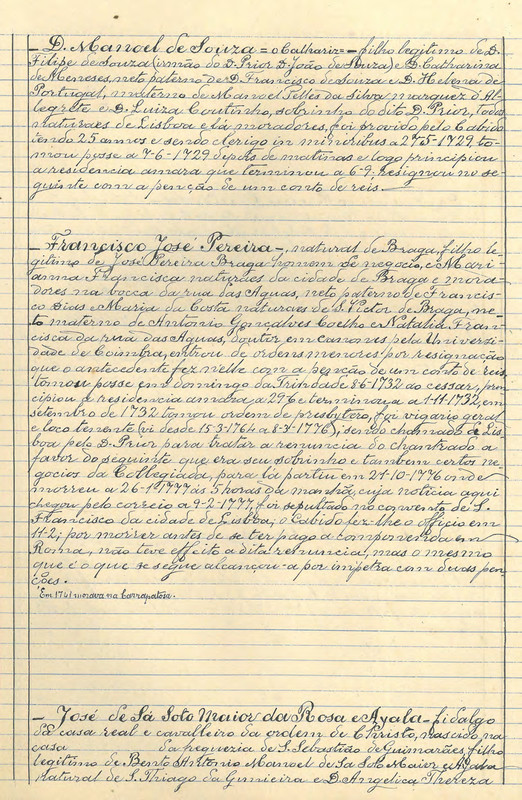 – D. Manoel de Souza = o Cathariz = – filho legitimo de D.
Filipe de Souza (irmão do D. Prior D. João de Souza) e D. Catharina
de Meneses, neto paterno de D. Francisco de Souza e D. Helena de
Portugal, materno de Manoel Telles da Silva marquez d'Al-
legrete e D. Luiza Coutinho, sobrinho do dito D. Prior, todos
naturaes de Lisboa e lá moradores, foi provido pelo Cabido
tendo 25 annos e sendo clerigo in minoribus a 27-5-1729, to-
mou posse a 7-6-1729 depois de matinas e logo principiou
a residencia amara que terminou a 6-9; resignou no se-
guinte com a penção de um conto de reis.
– Francisco José Pereira –, natural de Braga, filho le-
gitimo de José Pereira Braga homem de negocio, e Mari-
anna Francisca naturaes da cidade de Braga e mora-
dores na bocca da rua das Aguas, neto paterno de Francis-
co Dias e Maria da Costa naturaes de S. Victor de Braga, ne-
to materno de Antonio Gonçalves Coelho e Natalia Fran-
cisca da rua das Aguas, doutor em canones pela Universi-
dade de Coimbra, entrou de ordens menores por resignação
que o antecedente fez nelle com a penção de um conto de reis,
tomou posse em domingo da Trindade 8-6-1732 ao cessar, prin-
cipiou a residencia amara a 29-6 e terminou a 1-11-1732, em
setembro de 1732 tomou ordem de presbytero, foi vigario geral
e loco tenente desde 15-3-1764 a 8-7-1770; sendo chamado a Lis-
boa pelo D. Prior para tratar a renuncia do chantrado a
favor do seguinte que era seu sobrinho e tambem certos ne-
gocios da Collegiada, para lá partiu em 21-10-1776 onde
morreu a 26-1-1777 ás 5 horas da manhã, cuja noticia aqui
chegou pelo correio a 9-2-1777, foi sepultado no convento de S.
Francisco da cidade de Lisboa, o Cabido fez-lhe o officio em
11-2; por morrer antes de se ter pago a componenda em
Roma, não teve effeito a dita renuncia, mas o mesmo
que é o que se segue alcançou-a por impetra com duas pen-
ções.
Em 1741 morava na Carrapatosa.
– José de Sá Soto Maior da Rosa e Ayala – fidalgo
da casa real e cavalleiro da ordem de Christo, nascido na
casa da freguezia de S. Sebastião de Guimarães, filho
legitimo de Bento Antonio Manoel de Sá Soto Maior e Ayala
natural de S. Thiago da Gemieira e D. Angelica Thereza